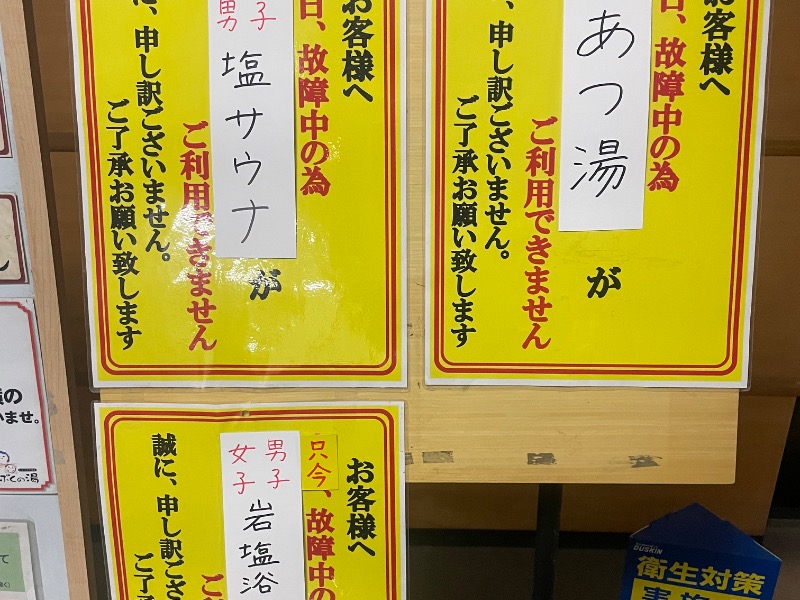 お客様へ
日、故障中の為
男子
塩サウナ
が
ご利用できません
に、申し訳ございません。
ご了承お願い致します
お客様へ
日、故障中の為
あつ湯
が
ご利用できません
、申し訳ございません。
ご了承お願い致します
お客様へ
只今、故障中の
男子
女子
岩塩浴
ご
誠に、申し訳ござ
ご了承
の
いませ。
の湯
DUSKIN
衛生対策